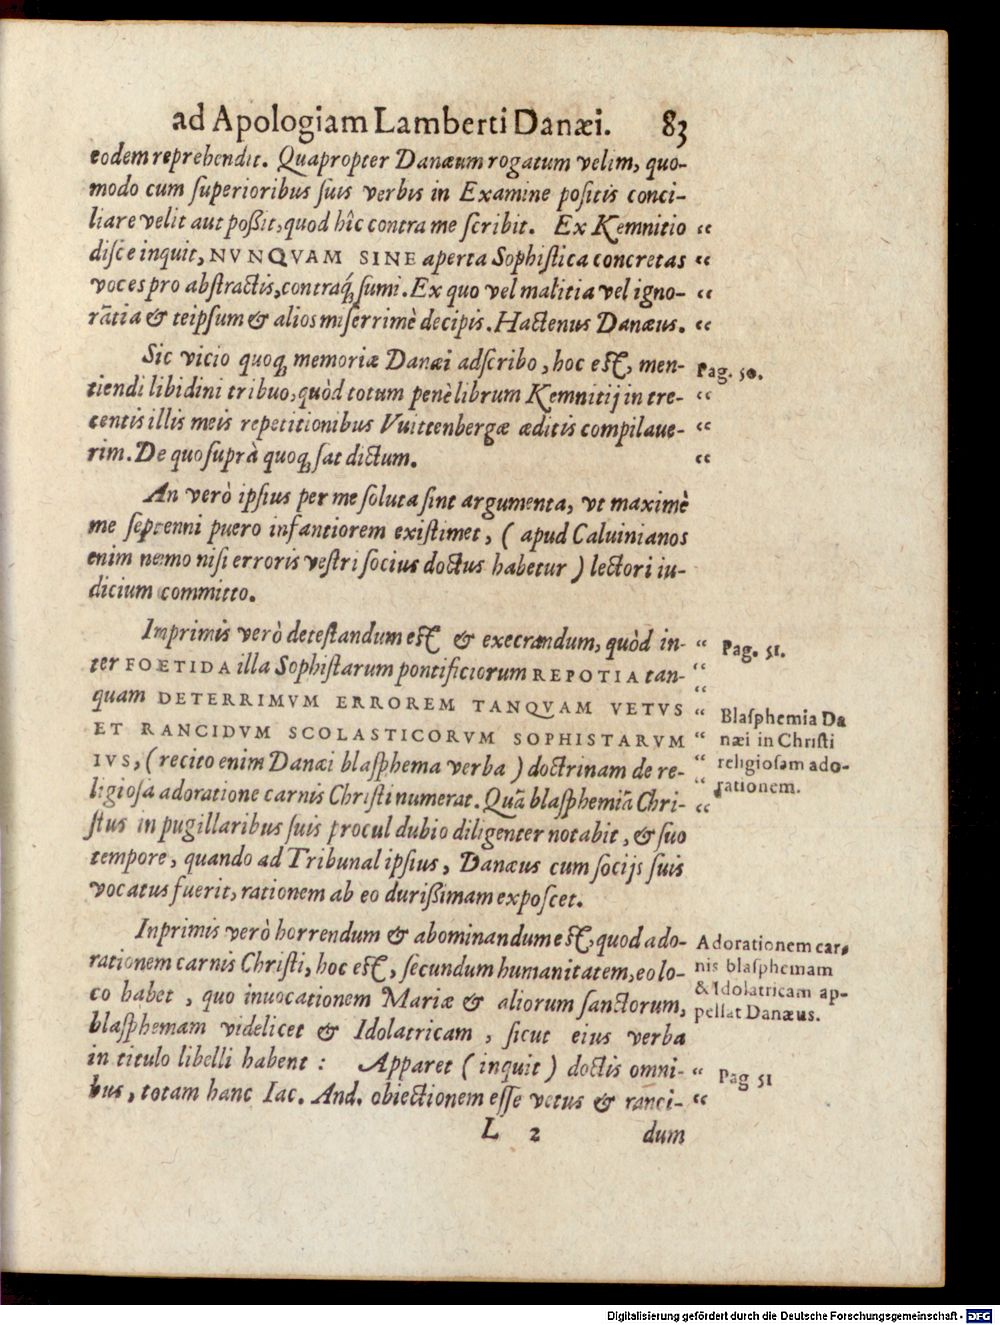 ad Apologiam Lamberti Danæi. 83
eodem reprehendit. Quapropter Danæum rogatum velim, quo-
modo cum ſuperioribus ſuis verbis in Examine poſitis conci-
liare velit aut poßit, quod hîc contra me ſcribit. Ex Kemnitio “
diſce inquit, NVNQVAM SINE aperta Sophiſtica concretas “
voces pro abſtractis, contraq́; ſumi. Ex quo vel malitia vel igno- “
rātia & teipſum & alios miſerrimè decipis. Hactenus Danæus. “
Sic vicio quoq; memoriæ Danæi adſcribo, hoc eſt, men- Pag. 50.
tiendi libidini tribuo, quòd totum penè librum Kemnitij in tre- “
centis illis meis repetitionibus Vuittenbergæ æditis compilaue- “
rim. De quo ſuprà quoq; ſat dictum. “
An verò ipſius per me ſoluta ſint argumenta, vt maximè
me ſeptenni puero infantiorem exiſtimet, ( apud Caluinianos
enim nemo niſi erroris veſtri ſocius doctus habetur ) lectori iu-
dicium committo.
Imprimis verò deteſtandum eſt & execrandum, quòd in- “ Pag. 51.
ter FOETIDA illa Sophiſtarum pontificiorum REPOTIA tan- “
quam DETERRIMVM ERROREM TANQVAM VETVS “
ET RANCIDVM SCOLASTICORVM SOPHISTARVM “
IVS, ( recito enim Danæi blaſphema verba ) doctrinam de re- “
ligioſa adoratione carnis Chriſti numerat. Quā blaſphemiā Chri- “
ſtus in pugillaribus ſuis procul dubio diligenter notabit, & ſuo
tempore, quando ad Tribunal ipſius, Danæus cum ſocijs ſuis
vocatus fuerit, rationem ab eo durißimam expoſcet.
Blaſphemia Da
næi in Chriſti
religioſam ado-
rationem.
Inprimis verò horrendum & abominandum eſt, quod ado-
rationem carnis Chriſti, hoc eſt, ſecundum humanitatem, eo lo-
co habet , quo inuocationem Mariæ & aliorum ſanctorum,
blaſphemam videlicet & Idolatricam , ſicut eius verba
in titulo libelli habent : Apparet ( inquit ) doctis omni- “ Pag 51
bus, totam hanc Iac. And. obiectionem eſſe vetus & ranci- “
Adorationem car,
nis blaſphemam
& Idolatricam ap-
pellat Danæus.
L 2 dum
Digitalisierung gefördert durch die Deutsche Forschungsgemeinschaft - DFG